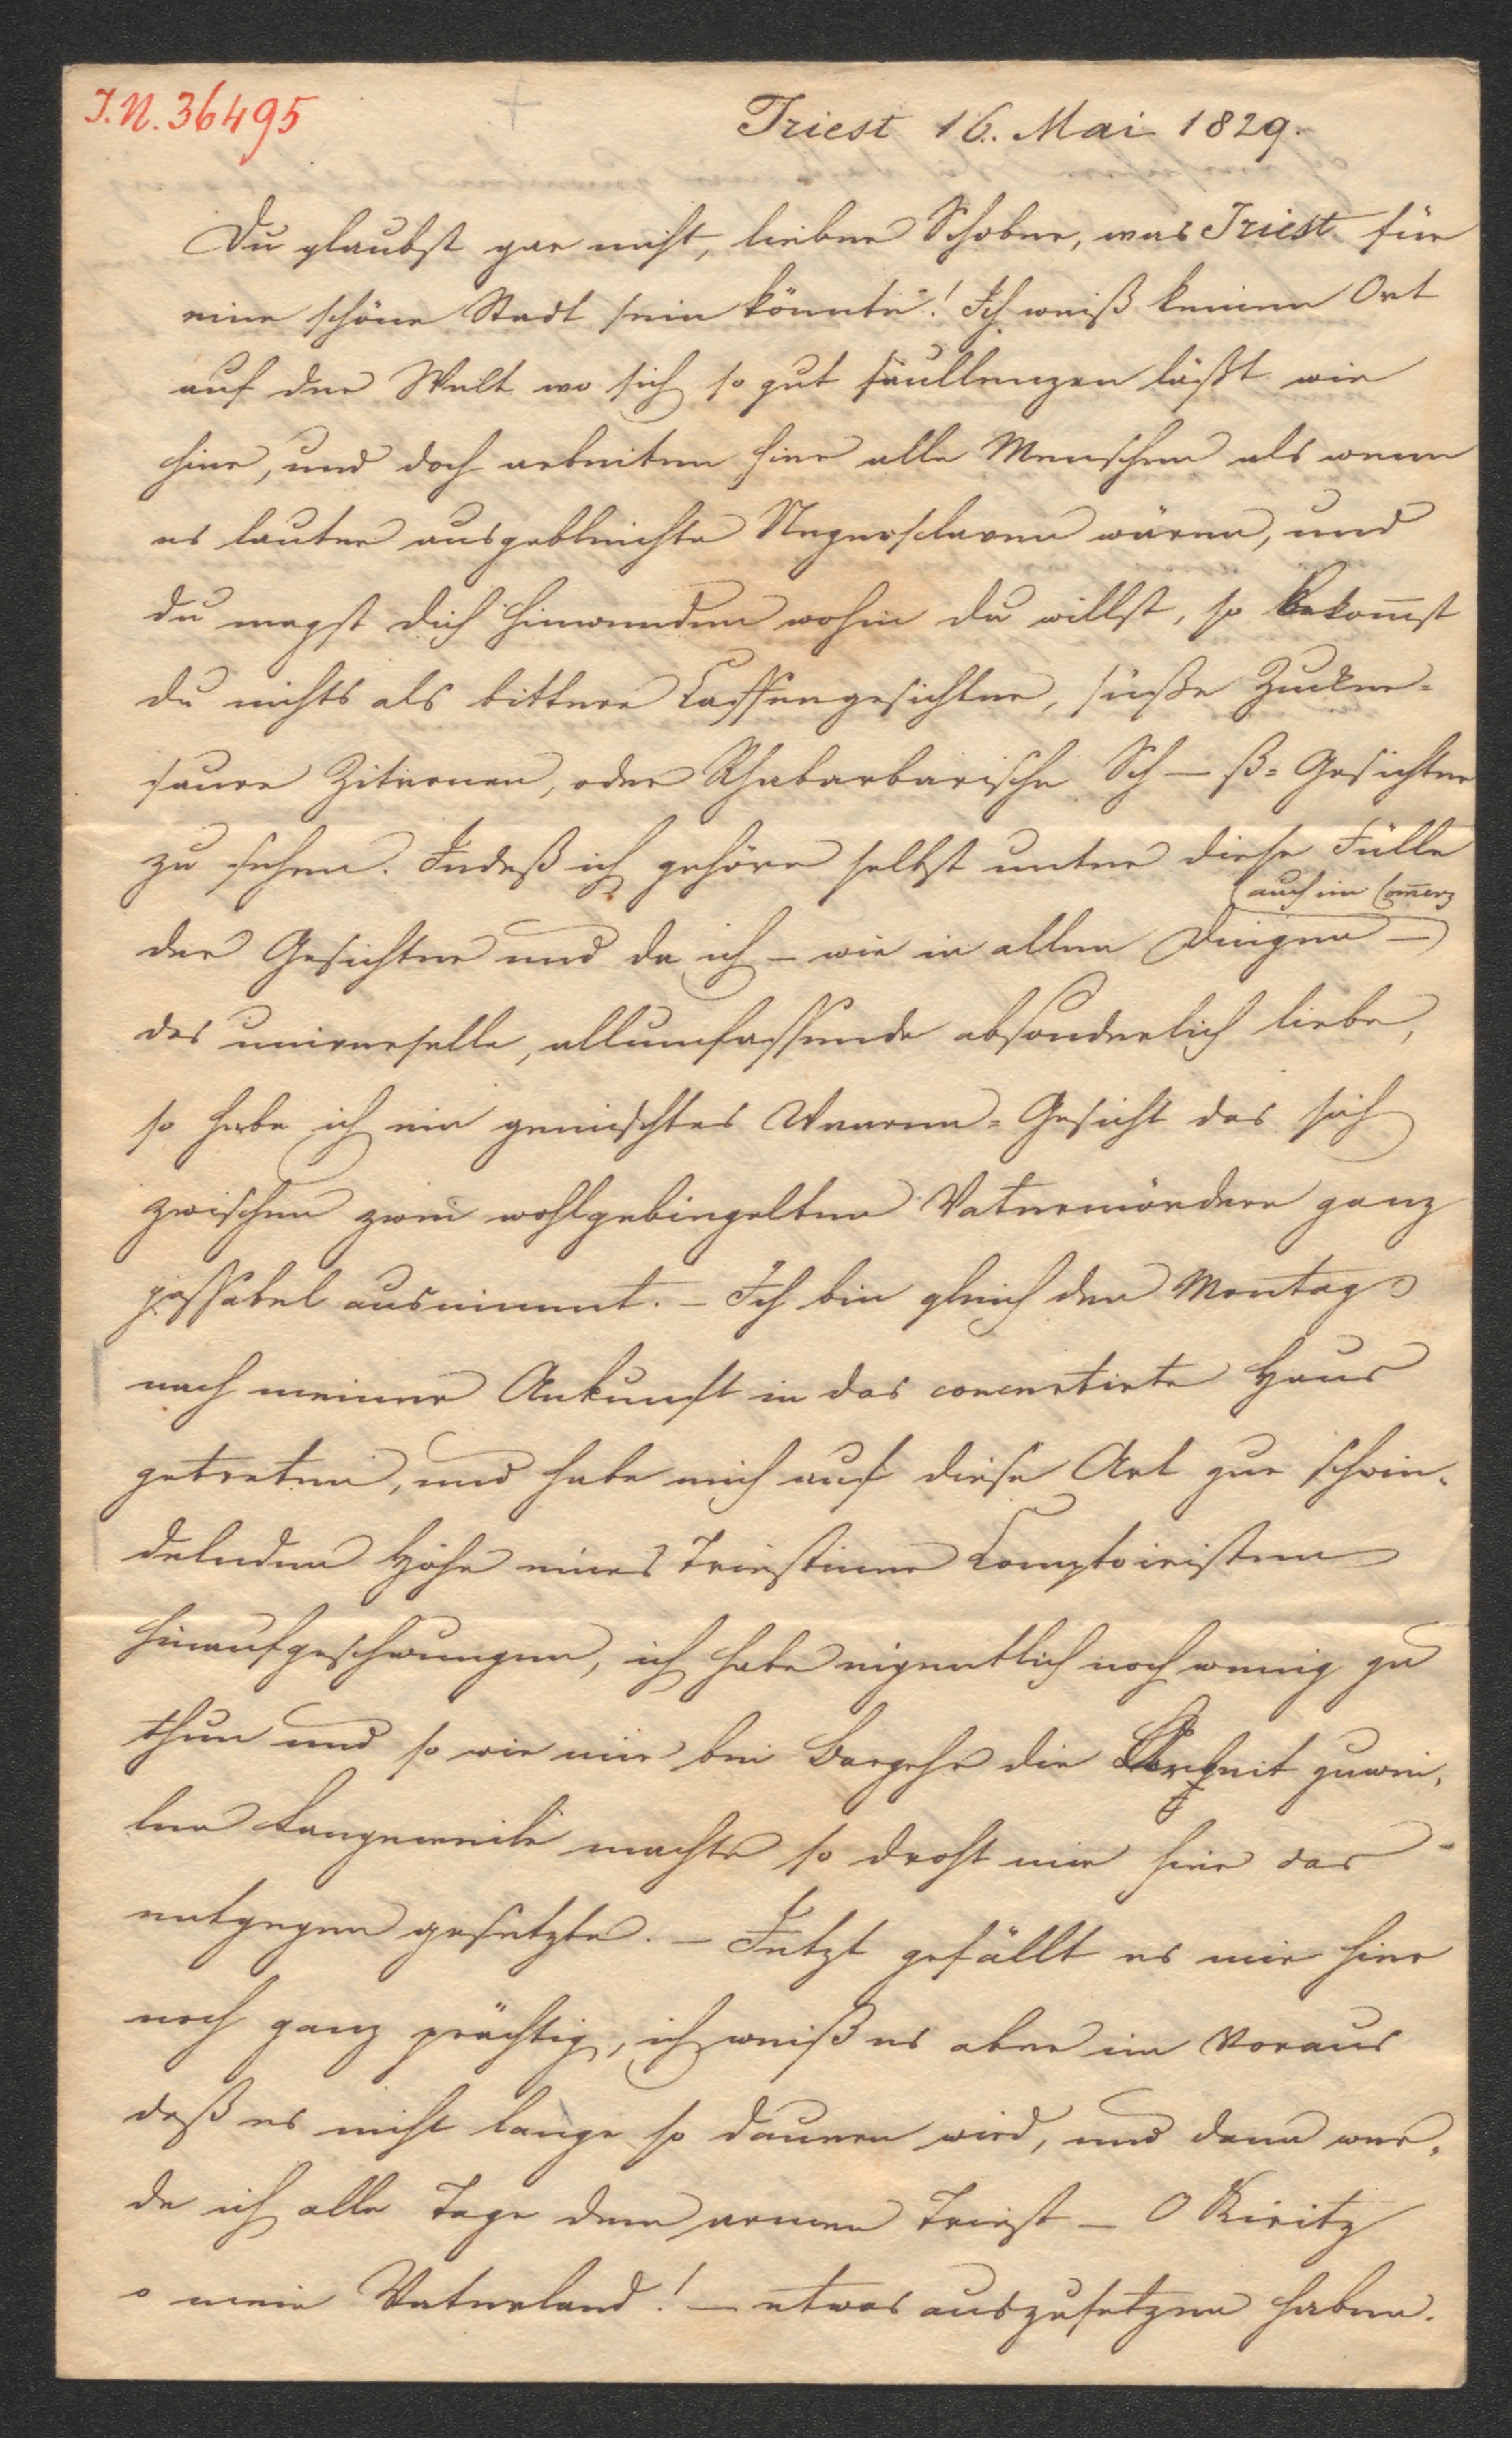 J.N. 36495
Triest 16. Mai 1829.
Du glaubst gar nicht, lieber Schober, was Triest für
eine schöne Stadt sein könnte! Ich weiß keinen Ort
auf der Welt wo sich so gut faullenzen läßt wie
hier, und doch arbeiten hier alle Menschen als wenn
es lauter ausgebleichte Negersclaven wären, und
du magst dich hinwenden wohin du willst, so bekom̅st
du nichts als bittere Caffeegesichter, süße Zucker-
saure Zitronen, oder Rhabarbarische Sch—ß-Gesichter
zu sehen. Indeß ich gehöre selbst unter diese Fülle
auch im Com̅erz
der Gesichter und da ich – wie in allen Dingen –
das universelle, allumfassende absonderlich liebe,
so habe ich ein gemischtes Waaren-Gesicht das sich
zwischen zwei wohlgebiegelten Vatermördern ganz
passabel ausnimmt. – Ich bin gleich den Montag
nach meiner Ankunft in das concertirte Haus
getreten, und habe mich auf diese Art zur schwin-
delnden Höhe eines Triestiner Comptoiristen
hinaufgeschwungen, ich habe eigentlich noch wenig zu
thun und so wie mir bei die zuwei-
len Langeweile machte so droht mir hier das
entgegen gesetzte. – Jetzt gefällt es mir hier
noch ganz prächtig, ich weiß es aber im Voraus
daß es nicht lange so dauern wird, und dann wer-
de ich alle Tage dem armen Triest – O Kiritz
o mein Vaterland! – etwas auszusetzen haben.